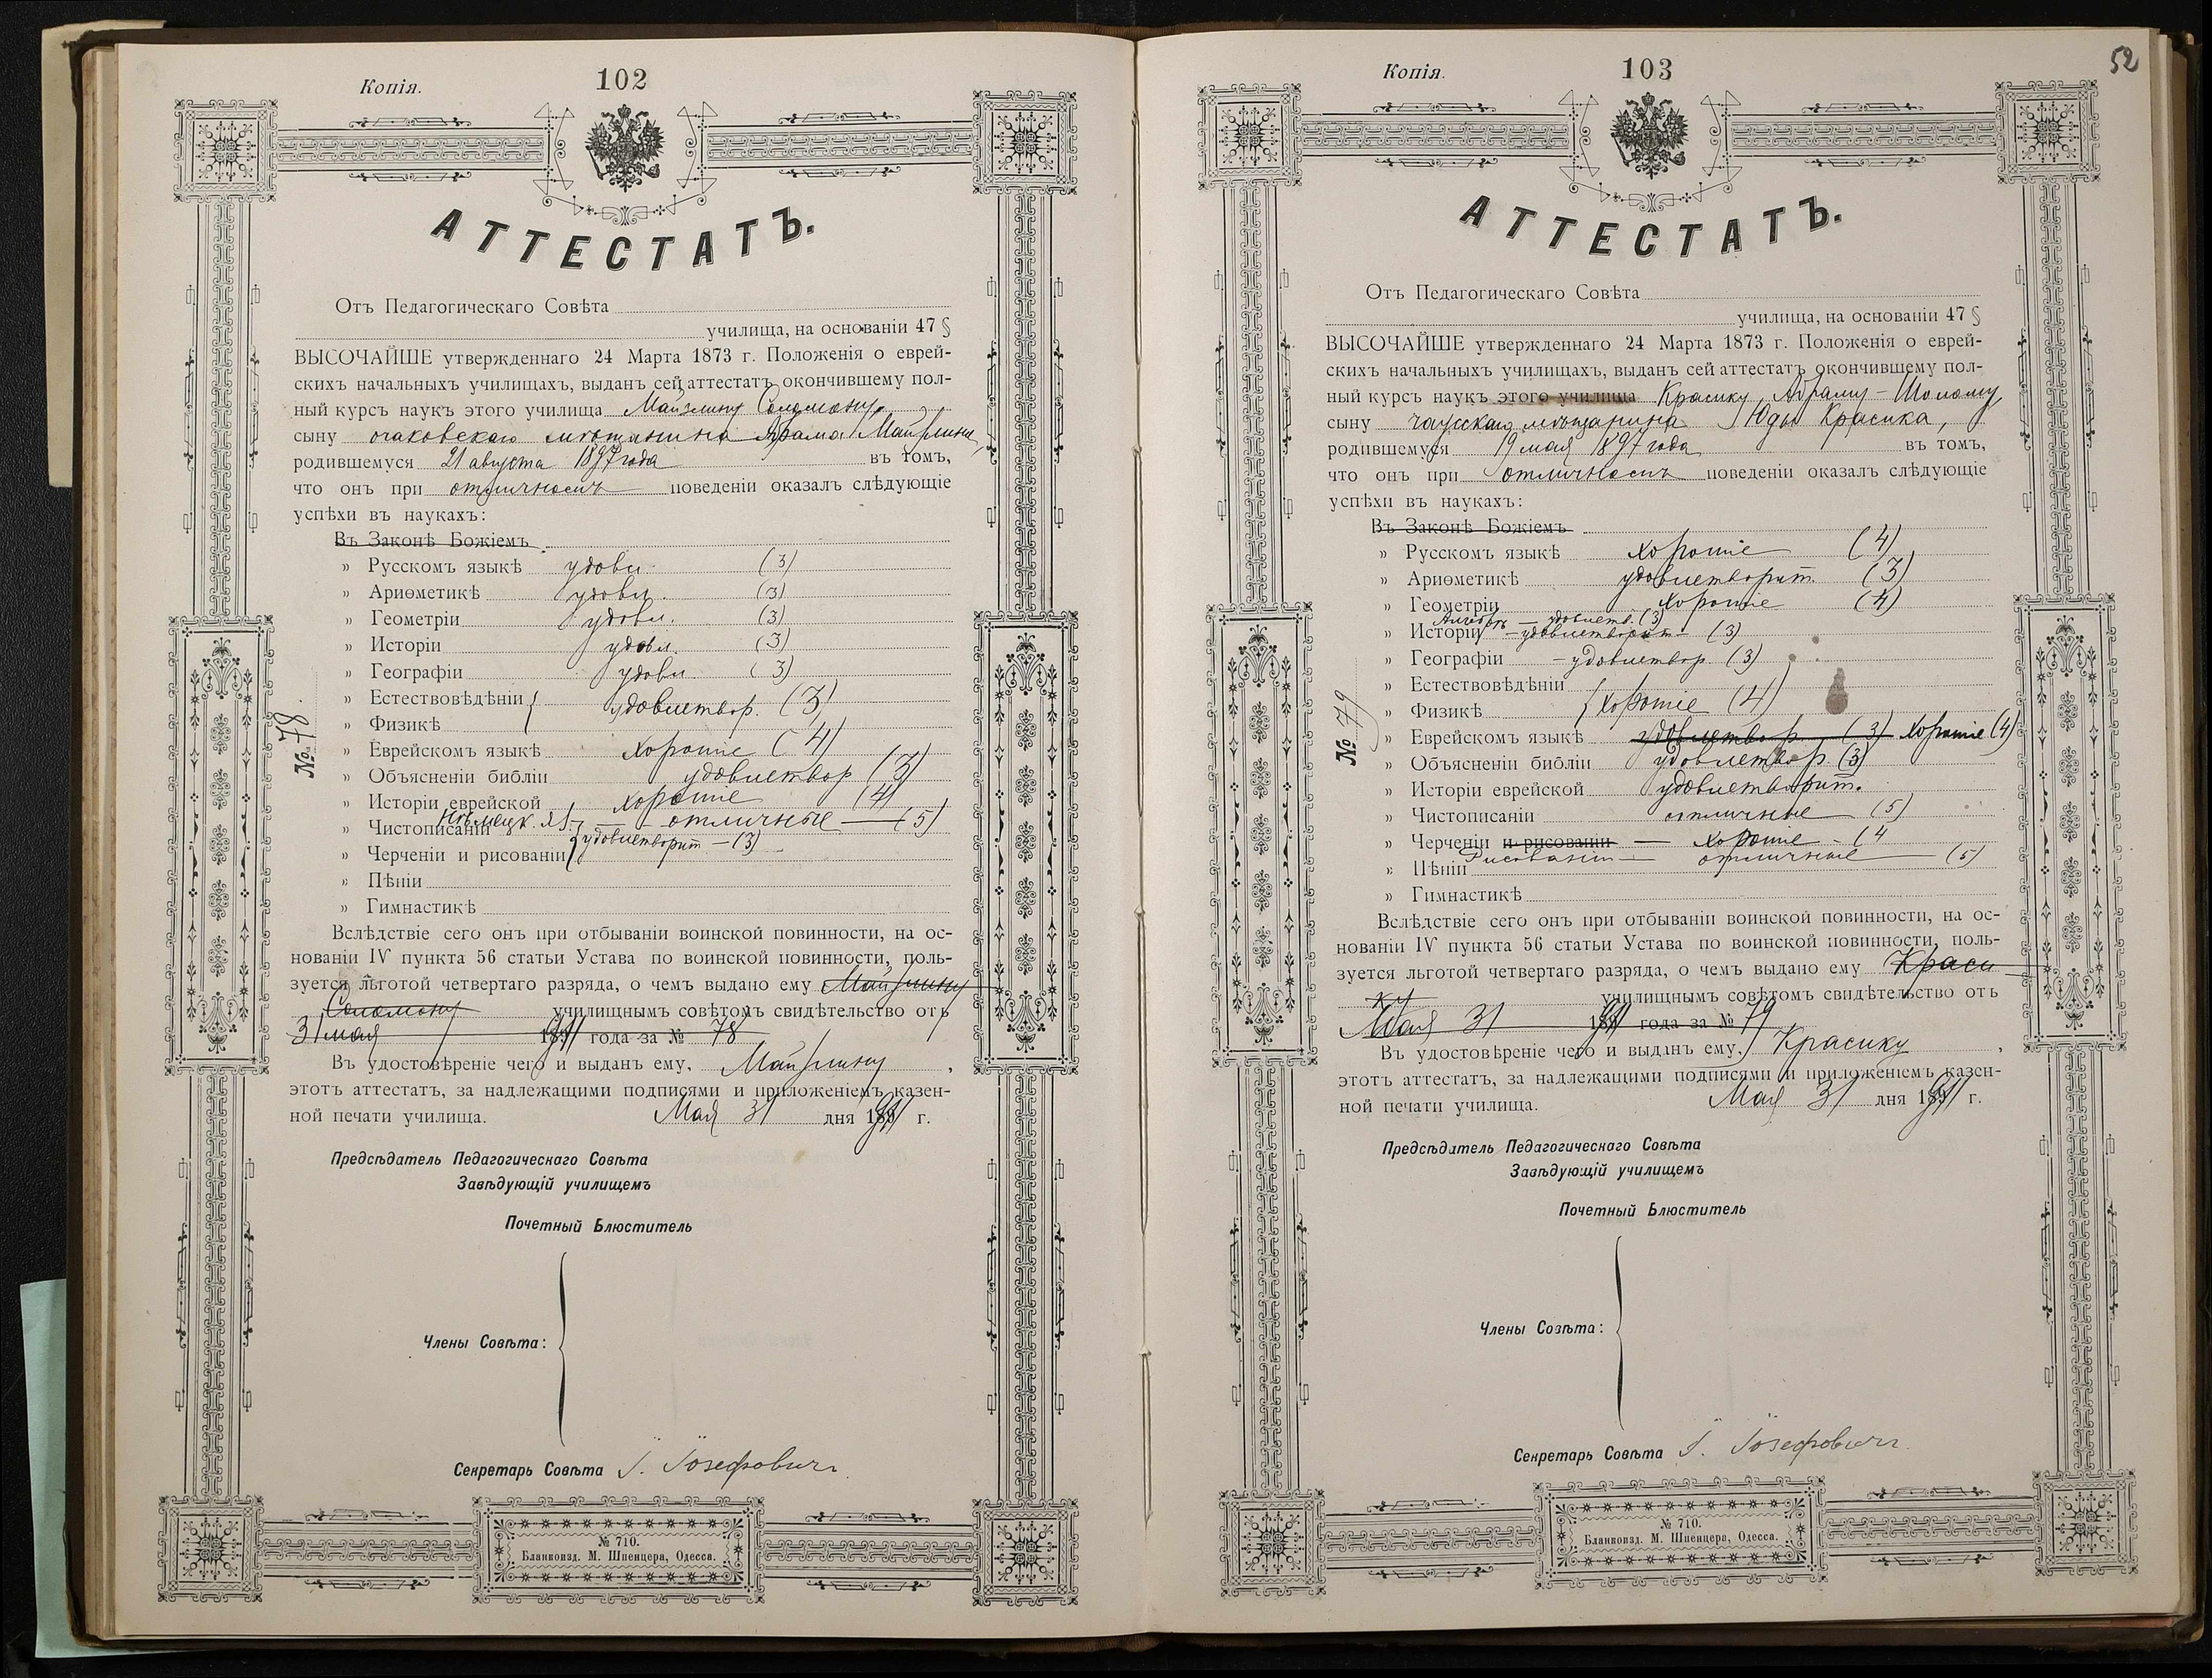 Копія.
102
АТТЕСТАТЪ.
Отъ Педагогическаго Совѣта
училища, на основаніи 47 §
ВЫСОЧАЙШЕ утвержденнаго 24 Марта 1873 г. Положенія о еврей-
скихъ начальныхъ училищахъ, выданъ сей аттестатъ окончившему пол-
ный курсъ наукъ этого училища Майзлину Соломону,
сыну очаковскаго мѣщанина Абрама Майзлина,
родившемуся 21 августа 1897 года въ томъ,
что онъ при отличномъ поведеніи оказалъ слѣдующіе
успѣхи въ наукахъ:
Въ Законѣ Божіемъ
» Русскомъ языкѣ удовл. (3)
» Ариѳметикѣ удовл. (3)
» Геометріи удовл. (3)
» Исторіи удовл. (3)
» Географіи удовл. (3)
» Естествовѣдѣніи
удовлетвор. (3)
» Физикѣ
» Еврейскомъ языкѣ хорошіе (4)
» Объясненіи библіи удовлетвор (3)
» Исторіи еврейской хорошіе (4)
Нѣмецк. яз. — отличные — (5)
» Чистописаніи
удовлетворит — (3)
» Черченіи и рисованіи
» Пѣніи
» Гимнастикѣ
Вслѣдствіе сего онъ при отбываніи воинской повинности, на ос-
нованіи IV пункта 56 статьи Устава по воинской повинности, поль-
зуется льготой четвертаго разряда, о чемъ выдано ему Майзлину
Соломону училищнымъ совѣтомъ свидѣтельство отъ
31 мая 1911 года за № 78
Въ удостовѣреніе чего и выданъ ему, Майзлину,
этотъ аттестатъ, за надлежащими подписями и приложеніемъ казен-
ной печати училища. Мая 31 дня 1911 г.
Предсѣдатель Педагогическаго Совѣта
Завѣдующій училищемъ
Почетный Блюститель
Члены Совѣта:
Секретарь Совѣта І. Іозефовичъ
№ 710.
Бланкоизд. М. Шпенцера, Одесса.
№ 78.
Копія.
103
52
АТТЕСТАТЪ.
Отъ Педагогическаго Совѣта
училища, на основаніи 47 §
ВЫСОЧАЙШЕ утвержденнаго 24 Марта 1873 г. Положенія о еврей-
скихъ начальныхъ училищахъ, выданъ сей аттестатъ окончившему пол-
ный курсъ наукъ этого училища Красику, Абраму-Шолому,
сыну чаусскаго мѣщанина Юды Красика,
родившемуся 19 мая 1897 года въ томъ,
что онъ при отличномъ поведеніи оказалъ слѣдующіе
успѣхи въ наукахъ:
Въ Законѣ Божіемъ
» Русскомъ языкѣ хорошіе (4)
» Ариѳметикѣ удовлетворит. (3)
» Геометріи хорошіе (4)
Алгебрѣ — удовлетв. (3)
» Исторіи — удовлетворит — (3)
» Географіи — удовлетвор. (3)
» Естествовѣдѣніи
хорошіе (4)
» Физикѣ
» Еврейскомъ языкѣ удовлетвор. (3) хорошіе (4)
» Объясненіи библіи удовлетвор. (3)
» Исторіи еврейской удовлетворит.
» Чистописаніи отличные (5)
» Черченіи и рисованіи — хорошіе - (4
Рисованіи — отличные — (5)
» Пѣніи
» Гимнастикѣ
Вслѣдствіе сего онъ при отбываніи воинской повинности, на ос-
нованіи IV пункта 56 статьи Устава по воинской повинности, поль-
зуется льготой четвертаго разряда, о чемъ выдано ему Краси-
ку училищнымъ совѣтомъ свидѣтельство отъ
Мая 31 1911 года за № 79
Въ удостовѣреніе чего и выданъ ему, Красику,
этотъ аттестатъ, за надлежащими подписями и приложеніемъ казен-
ной печати училища. Мая 31 дня 1911 г.
Предсѣдатель Педагогическаго Совѣта
Завѣдующій училищемъ
Почетный Блюститель
Члены Совѣта:
Секретарь Совѣта І. Іозефовичъ.
№ 710.
Бланкоизд. М. Шпенцера, Одесса.
№ 79